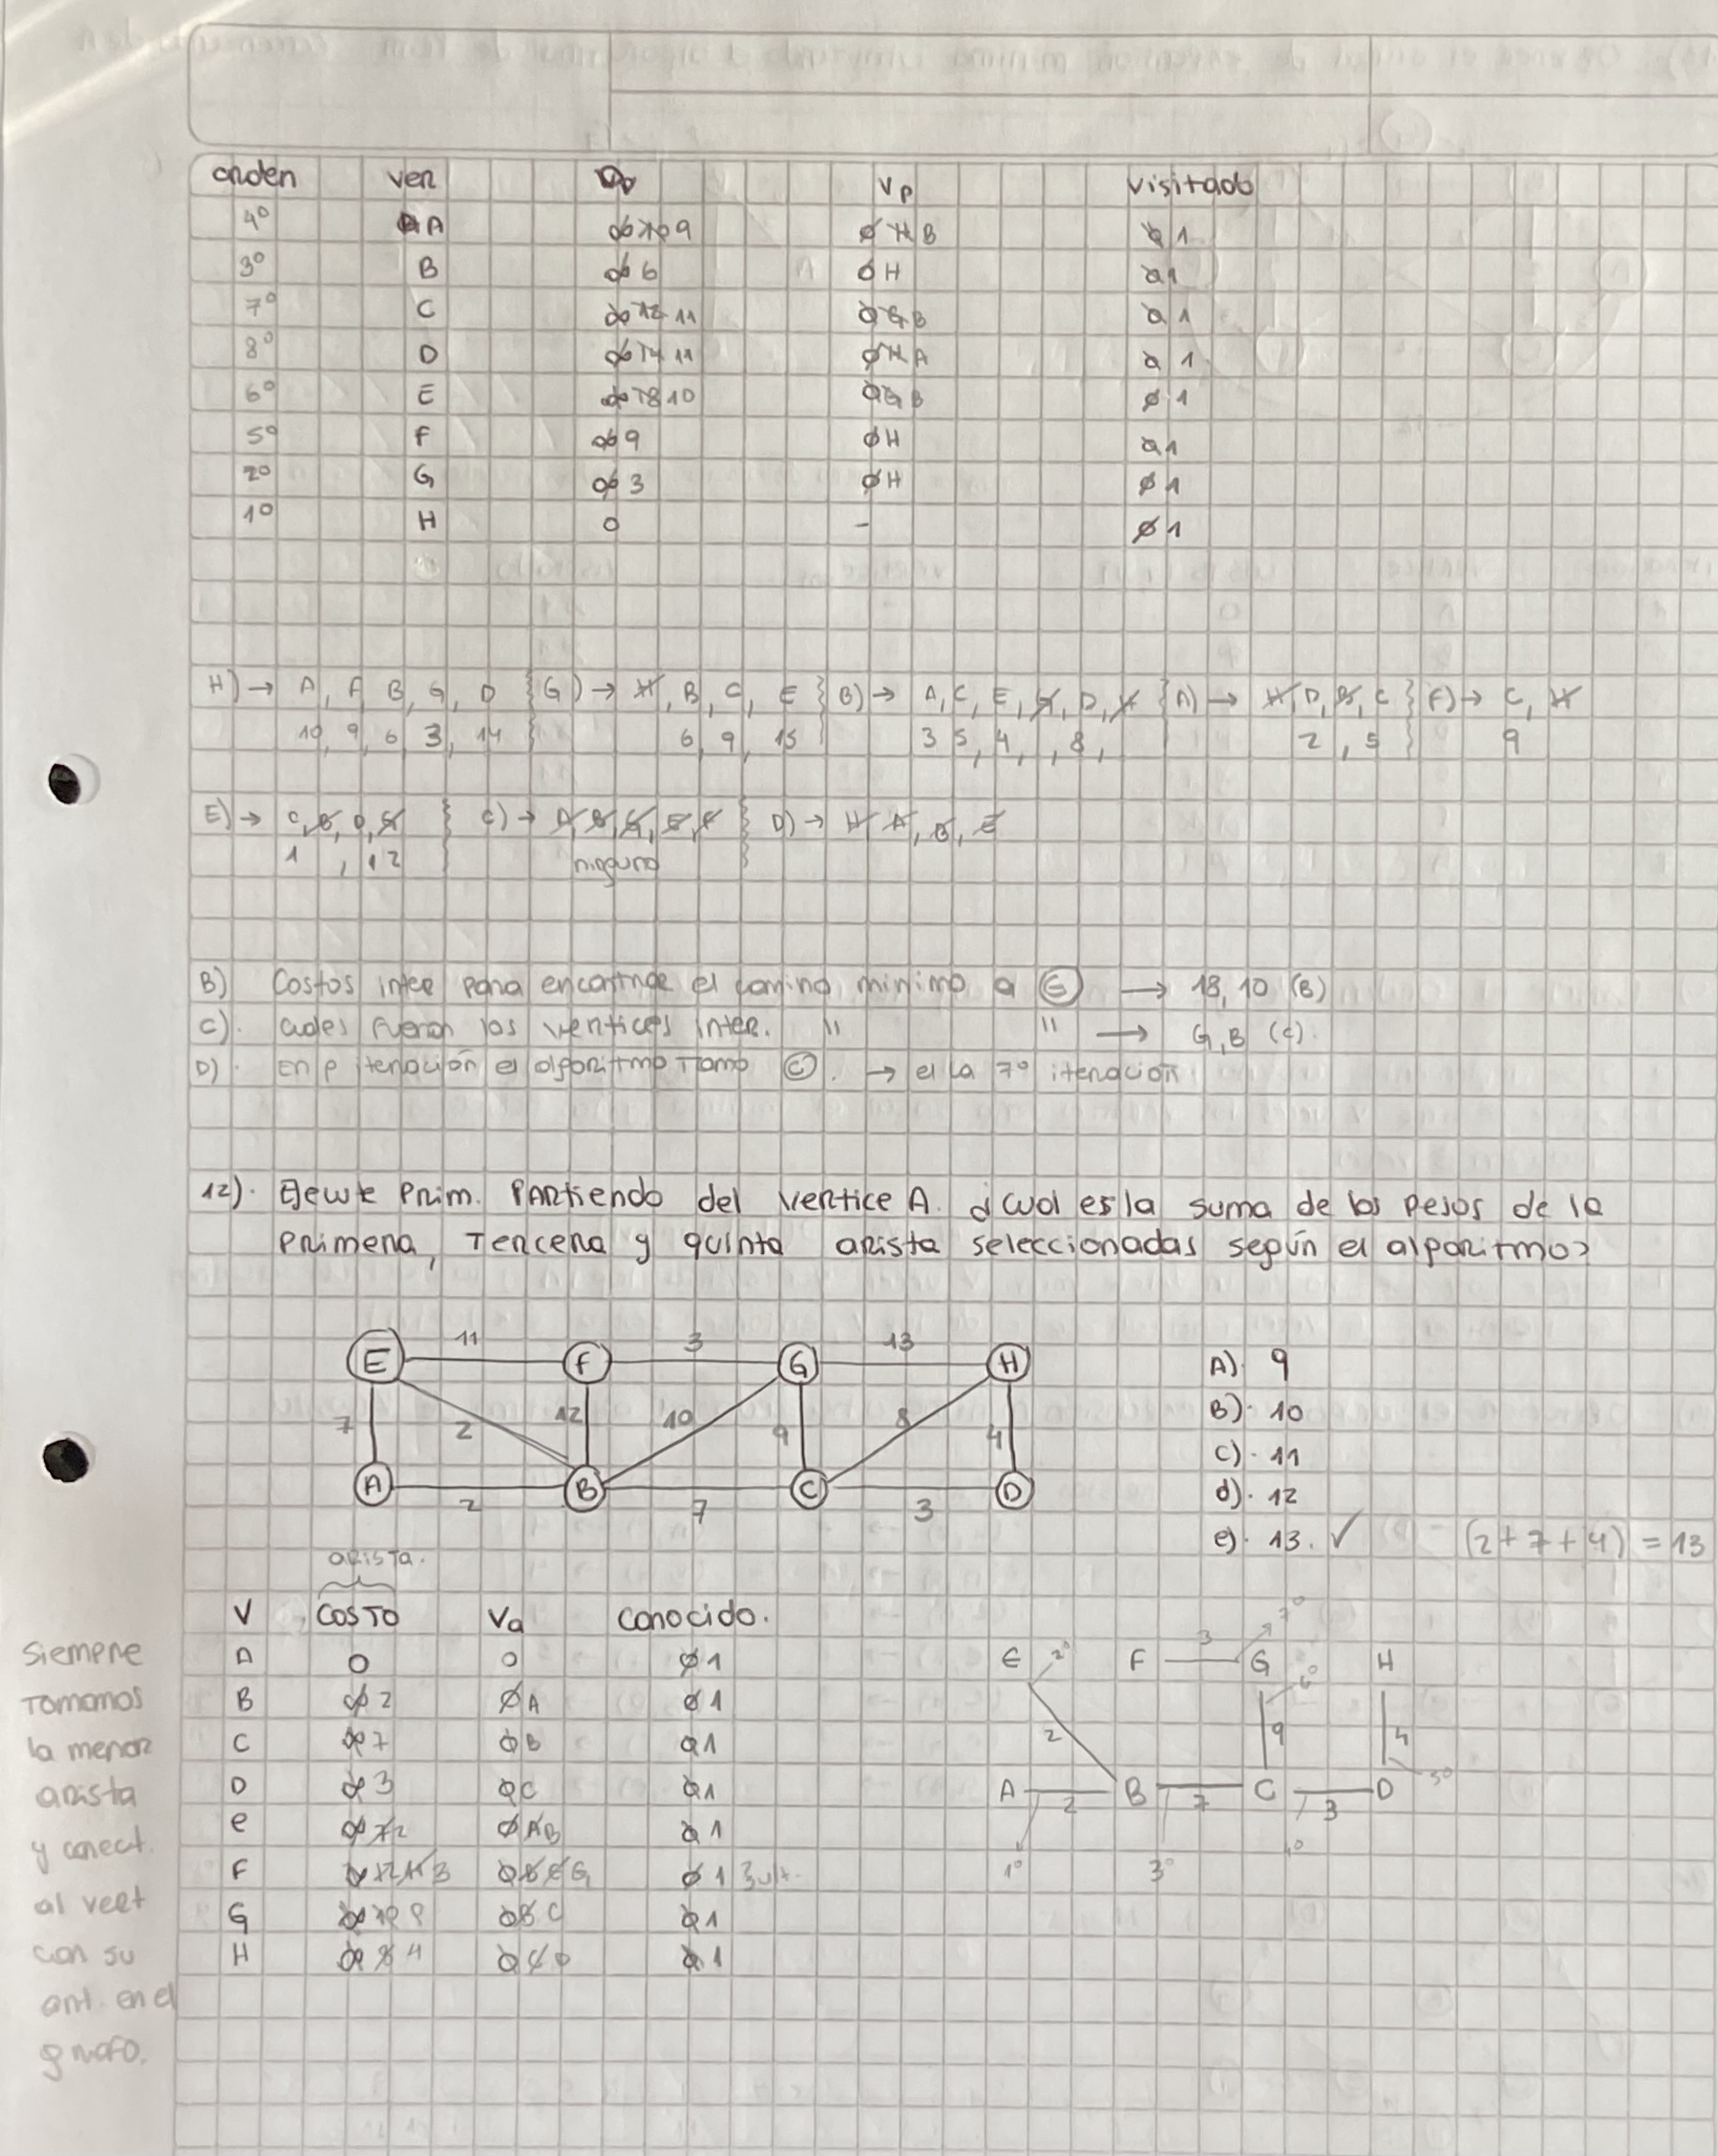 orden ver Dv Vp visitado
4º A ∞ 10 9 0 H B 0 1
3º B ∞ 6 0 H 0 1
7º C ∞ 12 11 0 G B 0 1
8º D ∞ 14 11 0 H A 0 1
6º E ∞ 18 10 0 G B 0 1
5º F ∞ 9 0 H 0 1
2º G ∞ 3 0 H 0 1
1º H 0 - 0 1
H) → A, F, B, G, D } G) → H, B, C, E } B) → A, C, E, G, D, H } A) → H, D, B, C } F) → C, H
10, 9, 6, 3, 14 6, 9, 15 3 5, 4, , 8, 2, 5 9
E) → C, B, D, G } C) → A, B, G, E, F } D) → H A, B, E
1 , 12 ninguno
B) Costos inter para encontrar el camino minimo a E → 18, 10 (B)
C). cuales fueron los vertices inter. " " → G, B (C).
D). En q iteración el algoritmo tomo C. → el la 7º iteración
12). Ejecute Prim. Partiendo del vertice A. ¿cual es la suma de los pesos de la
primera, Tercera y quinta arista seleccionadas según el algoritmo?
11 3 13
E F G H
7 2 12 10 9 8 4
A B C D
2 7 3
A) 9
B). 10
c). 11
d). 12
e). 13. ✓ (2+7+4) = 13
arista.
V COSTO Va conocido.
A 0 0 0 1
B ∞ 2 0 A 0 1
C ∞ 7 0 B 0 1
D ∞ 3 0 C 0 1
e ∞ 7 2 0 A B 0 1
F ∞ 12 11 3 0 B E G 0 1 } ult.
G ∞ 10 9 0 B C 0 1
H ∞ 8 4 0 C D 0 1
Siempre
tomamos
la menor
arista
y conect.
al vert
con su
ant. en el
grafo.
7º
E 2º F 3 G H
6º
2 9 4
5º
A 2 B 7 C 3 D
1º 3º 4º